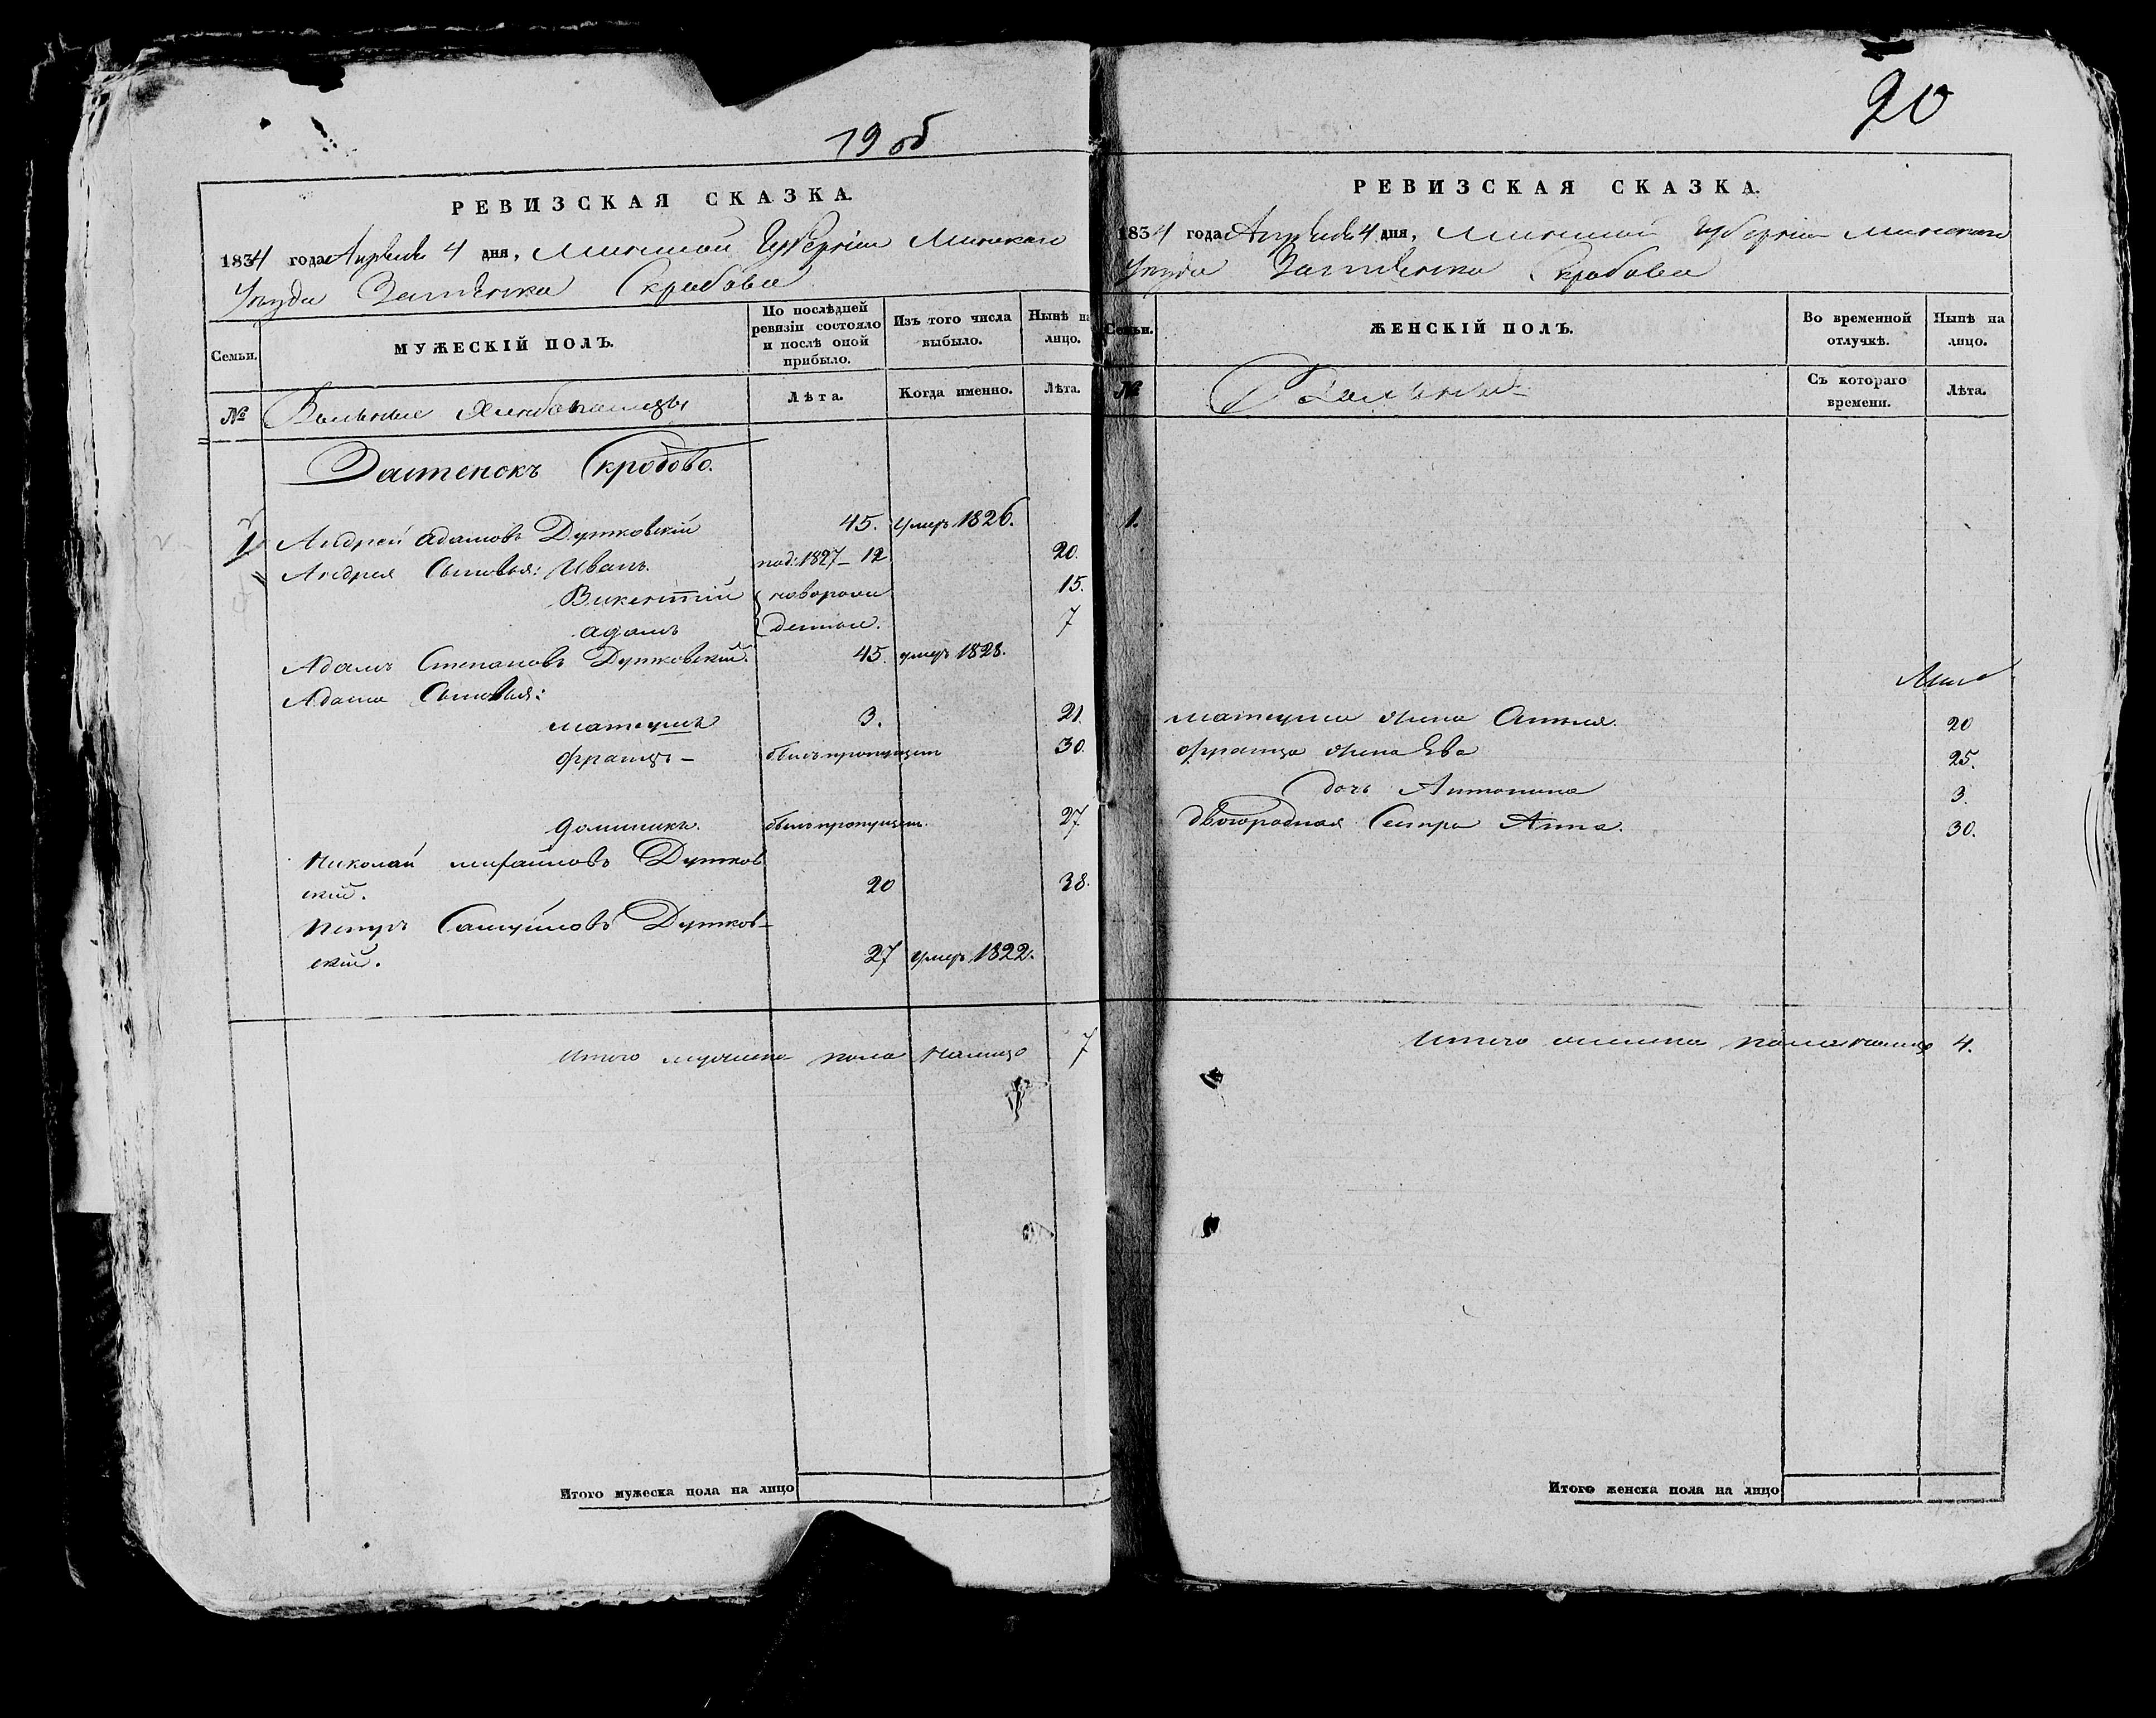 19 об
РЕВИЗСКАЯ СКАЗКА.
1834 года Апреля 4 дня, Минской Губерніи Минскаго
Уезда Застенка Скробова
Семьи.
МУЖЕСКІЙ ПОЛЪ.
По послѣдней ревизіи состояло и послѣ оной прибыло.
Изъ того числа выбыло.
Нынѣ на лицо.
№
Вольные Хлебопашцы
Лѣта.
Когда именно.
Лѣта.
Застенокъ Скробово.
1 Андрей Адамовъ Дутковскій 45. умеръ 1826.
Андрея Сыновья: Иванъ. 1827 – 12 20.
Викентій новорож 15.
Адамъ денные. 7
Адамъ Степановъ Дутковскій. 45. умеръ 1828.
Адама Сыновья:
Матеушъ 3. 21.
Францъ – былъ пропущенъ 30.
Доминикъ. былъ пропущенъ. 27
Николай Михайловъ Дутков
скій. 20 38.
Петръ Самуйловъ Дутков-
скій. 27 умеръ 1822.
Итого мужеска пола налицо 7
Итого мужеска пола на лицо
20
РЕВИЗСКАЯ СКАЗКА.
1834 года Апреля 4 дня, Минской Губерніи Минскаго
Уезда Застенка Скробова
Семьи.
ЖЕНСКІЙ ПОЛЪ.
Во временной отлучкѣ.
Нынѣ на лицо.
№
Съ котораго времени.
Лѣта.
1.
Лета
Матеуша жена Анеля. 20
Франца жена Ева 25.
дочь Антонина 3.
двоюродная Сестра Анна. 30.
Итого женска пола налицо 4.
Итого женска пола на лицо